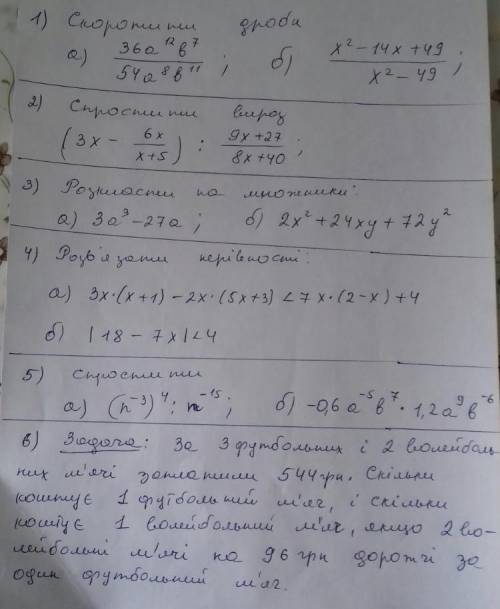 1) Скоротити дроби
а) 36a¹²b⁷/54a⁸b¹¹ ; б) x²−14x+49/x²−49 ;
2) Спростити вираз
(3x − 6x/x+5) : 9x+27/8x+40 ;
3) Розкласти на множники:
а) 3a³−27a ; б) 2x²+24xy+72y²
4) Розв'язати нерівності:
а) 3x·(x+1)−2x·(5x+3)<7x·(2−x)+4
б) |18−7x|<4
5) Спростити
а) (n⁻³)⁴ : n⁻¹⁵ ; б) −0,6a⁻⁵b⁷·1,2a⁹b⁻⁶
6) Задача: За 3 футбольних і 2 волейболь
них м'ячі заплатили 544 грн. Скільки
коштує 1 футбольний м'яч, і скільки
коштує 1 волейбольний м'яч, якщо 2 во-
лейбольні м'ячі на 96 грн дорожчі за
один футбольний м'яч.